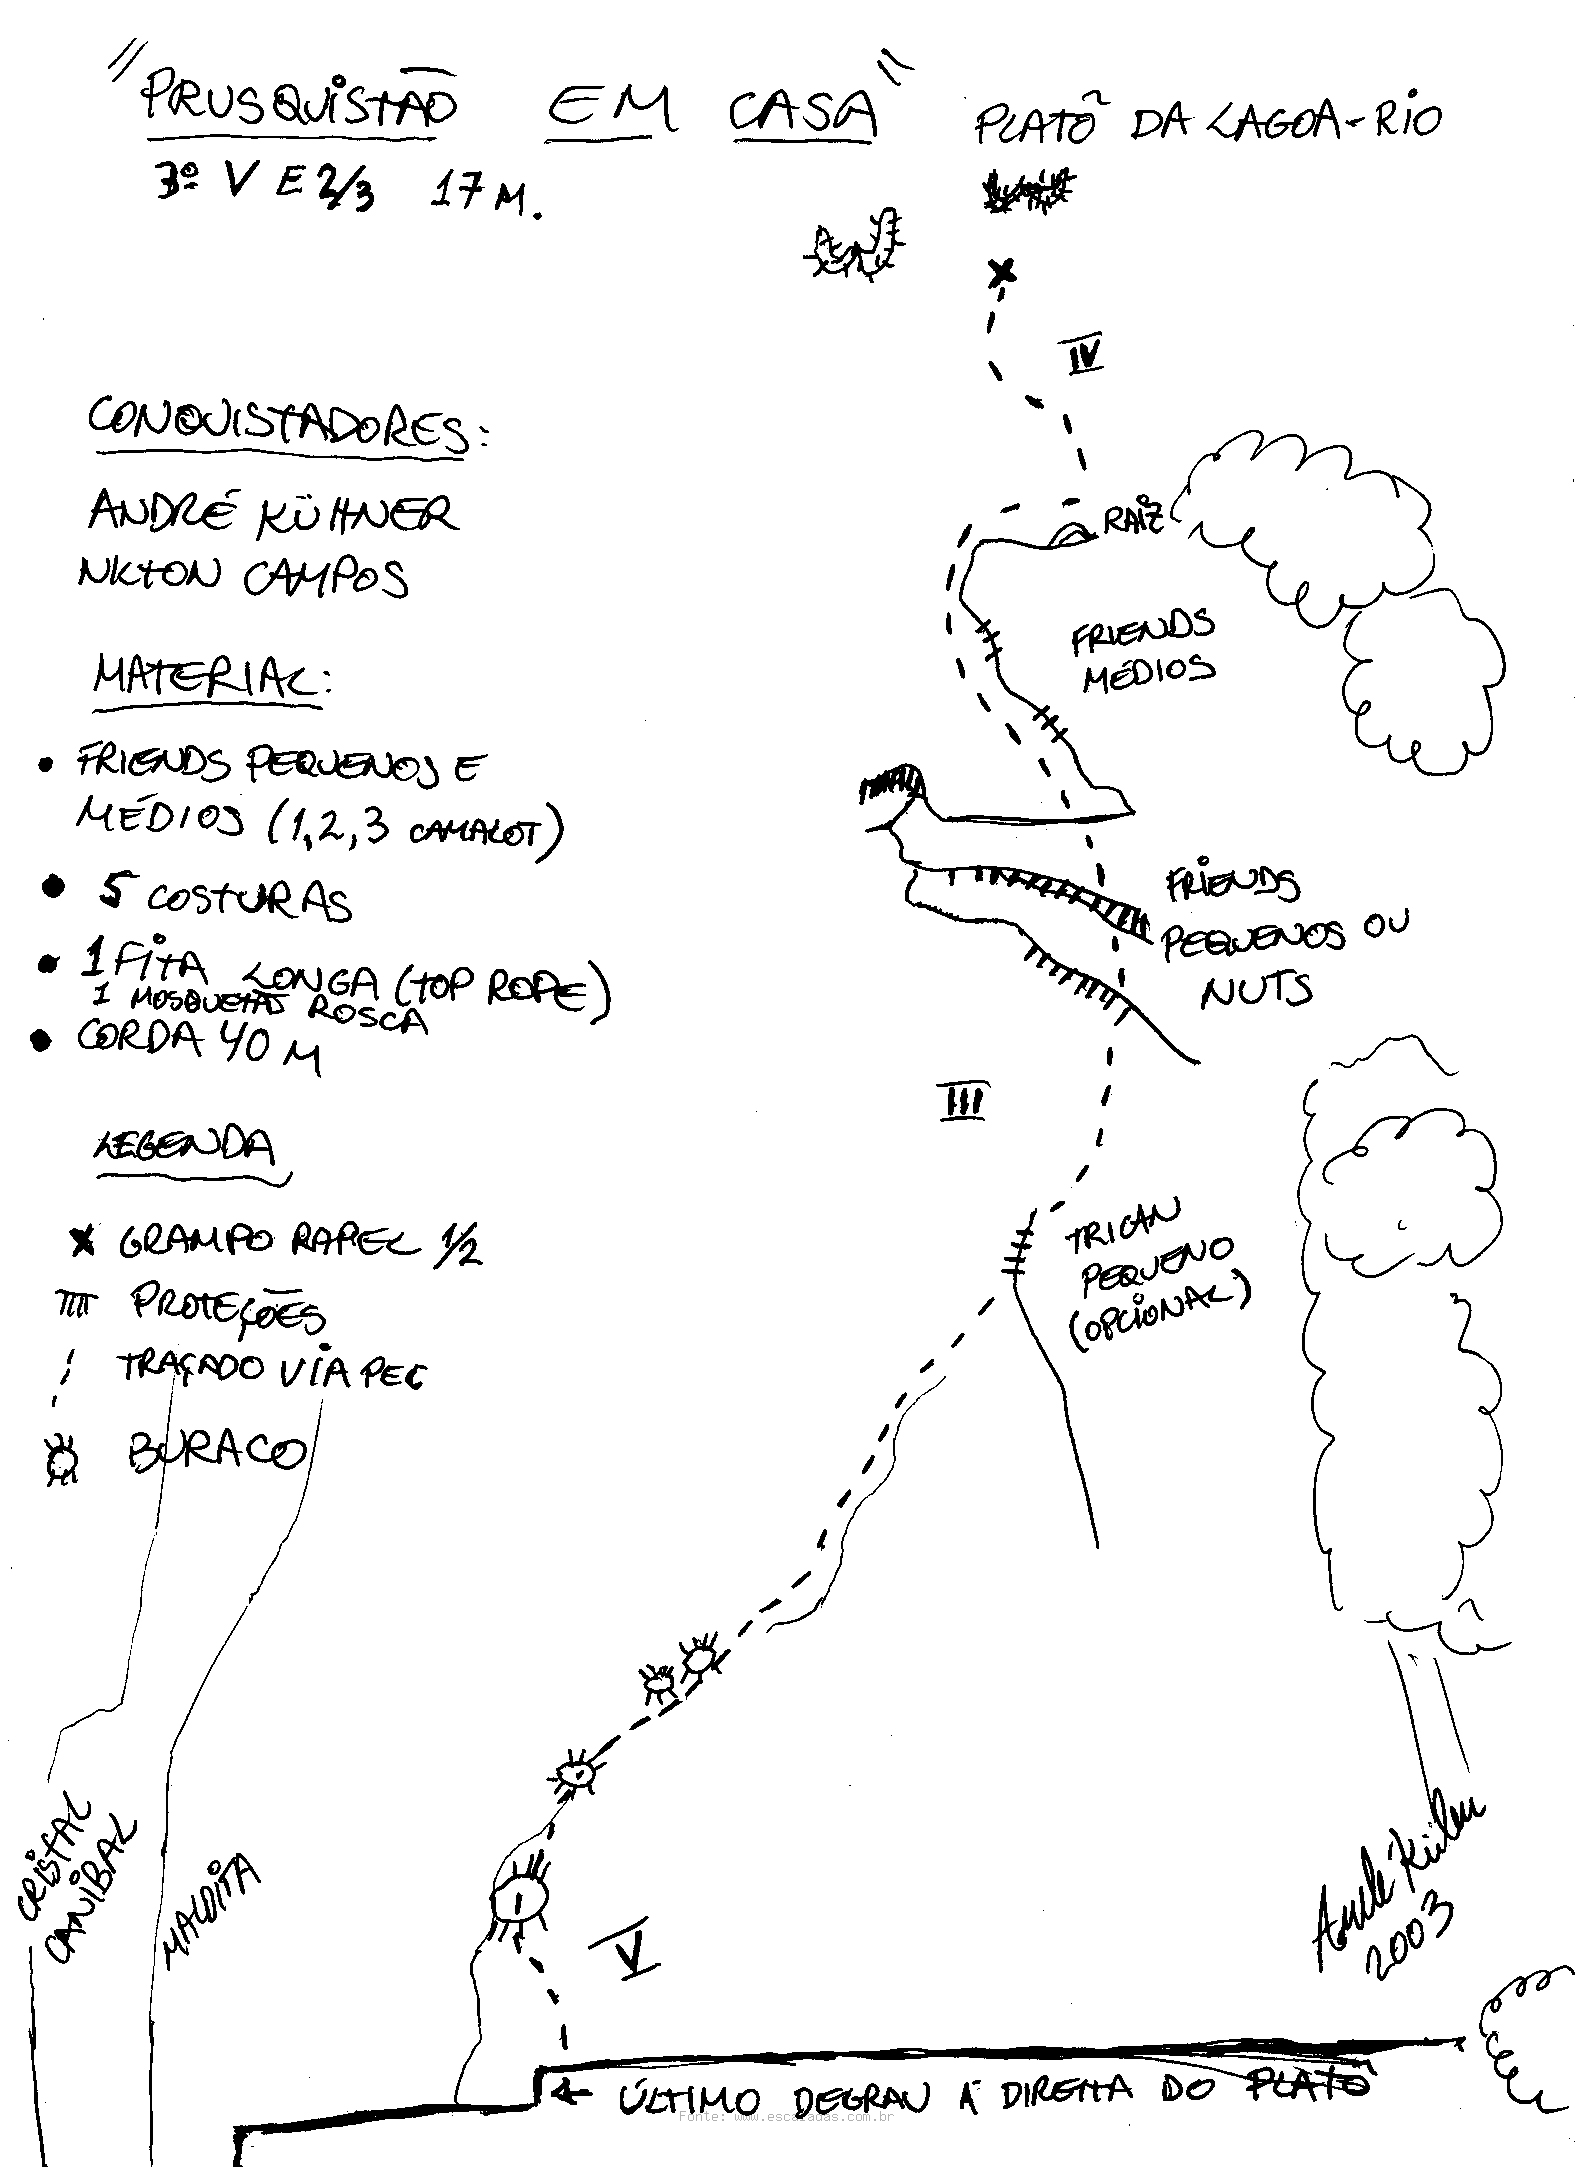 "PRUSQUISTÃO EM CASA" PLATÔ DA LAGOA-RIO
3º V E 2/3 17 M.
IV
CONQUISTADORES:
ANDRÉ KÜHNER
NKTON CAMPOS
RAIZ
FRIENDS
MÉDIOS
MATERIAL:
• FRIENDS PEQUENOS E
MÉDIOS (1,2,3 CAMALOT)
• 5 COSTURAS
• 1 FITA LONGA (TOP ROPE)
1 MOSQUETÃO ROSCA
• CORDA 40 M
FRIENDS
PEQUENOS OU
NUTS
III
LEGENDA
GRAMPO RAPEL 1/2
PROTEÇÕES
TRAÇADO VIA PEC
BURACO
TRICAN
PEQUENO
(OPCIONAL)
CRISTAL
CANIBAL
MALDITA
V
André Kühner
2003
← ÚLTIMO DEGRAU À DIREITA DO PLATÔ
Fonte: www.escaladas.com.br